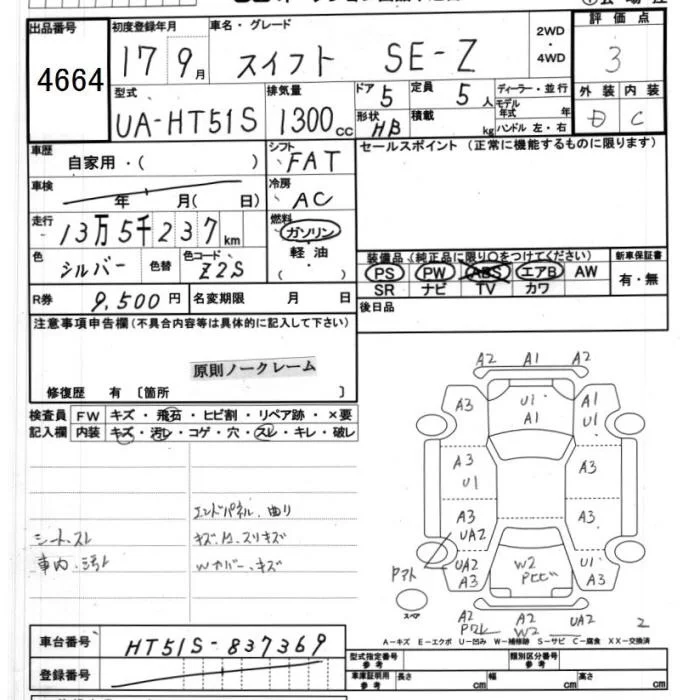 出品番号
4664
初度登録年月
17 9月
車名・グレード
スイフト SE-Z
2WD
・
4WD
評価点
3
型式
UA-HT51S
排気量
1300cc
ドア 5
定員 5人
ディーラー・並行
モデル年式 年
形状 HB
積載 kg
ハンドル 左・右
外装 内装
D C
車歴 自家用・( )
シフト FAT
セールスポイント(正常に機能するものに限ります)
車検 年 月( 日)
冷房 AC
走行 13万5千237km
燃料 ガソリン
軽油
( )
色 シルバー 色替 色コード Z2S
装備品(純正品に限り〇をつけてください)
新車保証書
PS PW ABS エアB AW
有・無
SR ナビ TV カワ
R券 9,500円 名変期限 月 日
後日品
注意事項申告欄(不具合内容等は具体的に記入して下さい)
原則ノークレーム
修復歴 有〔箇所 〕
検査員 FW キズ・飛石・ヒビ割・リペア跡・×要
記入欄 内装 キズ・汚レ・コゲ・穴・スレ・キレ・破レ
エンドパネル、曲り
シート、スレ
車内、汚レ
Wカバー、キズ
A2 A1 A2
A3 U1 A1
A1 U1
A3 U1 A3
A3 UA2 A3
UA2 A3 W2 U1 A3
スペア
A2 A2 UA2 2
W2
A-キズ E-エクボ U-凹み W-補修跡 S-サビ C-腐食 XX-交換済
車台番号 HT51S-837369
登録番号
型式指定番号 参考
類別区分番号 参考
車庫証明用 参考 長さ cm 幅 cm 高さ cm